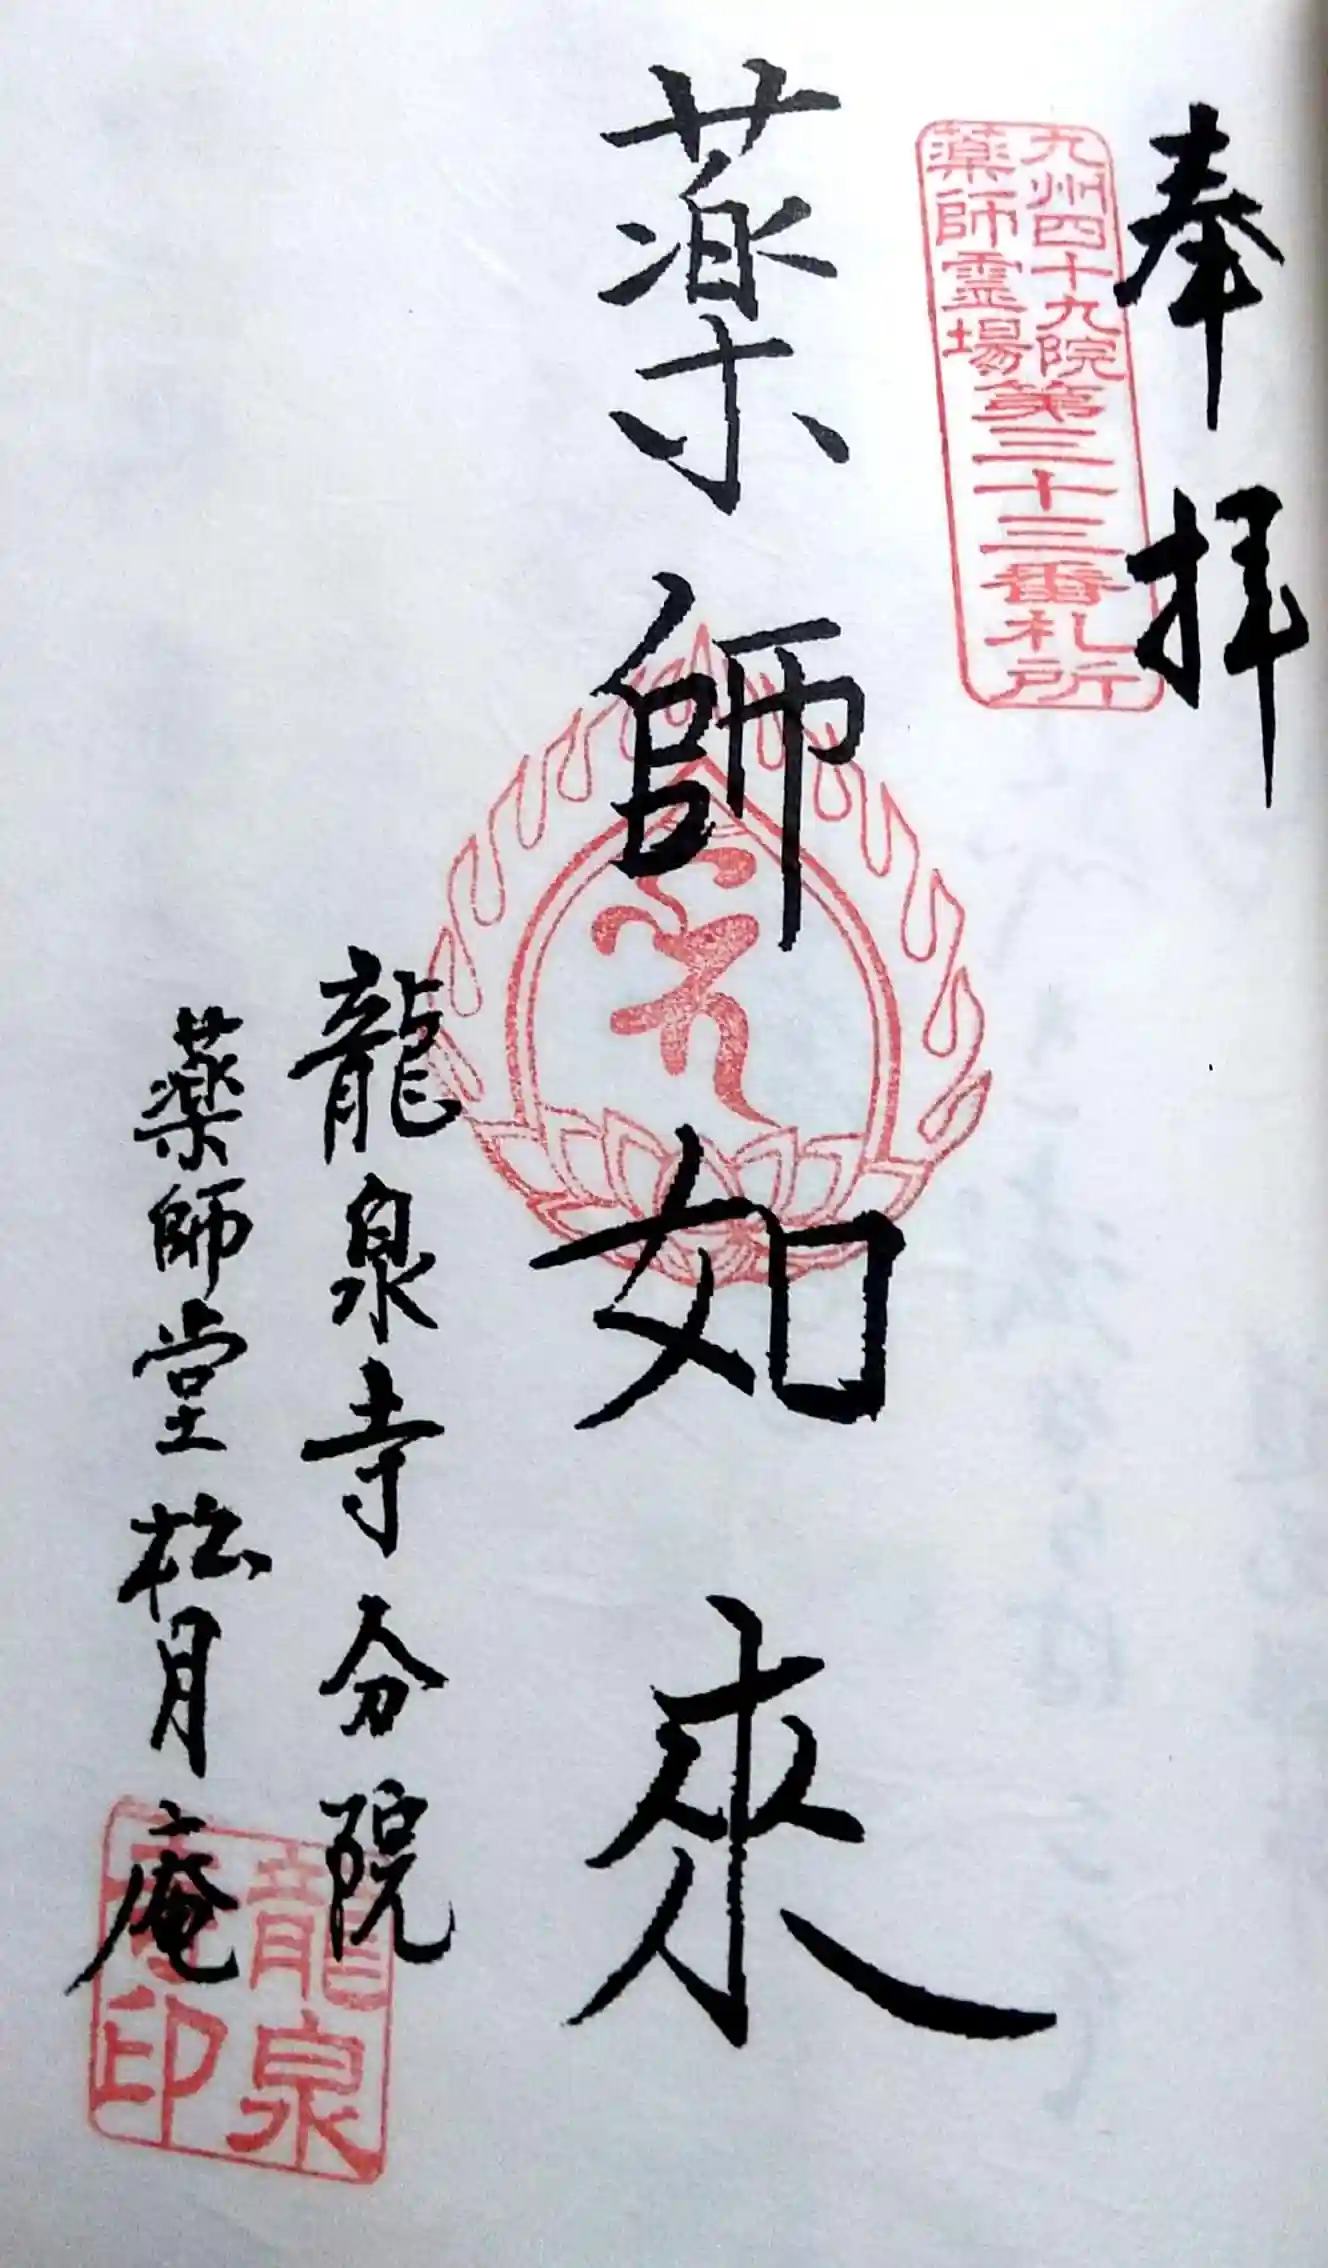 奉拝
九州四十九院
薬師霊場
第三十三番札所
薬師如来
龍泉寺分院
薬師堂松月庵
龍泉
印